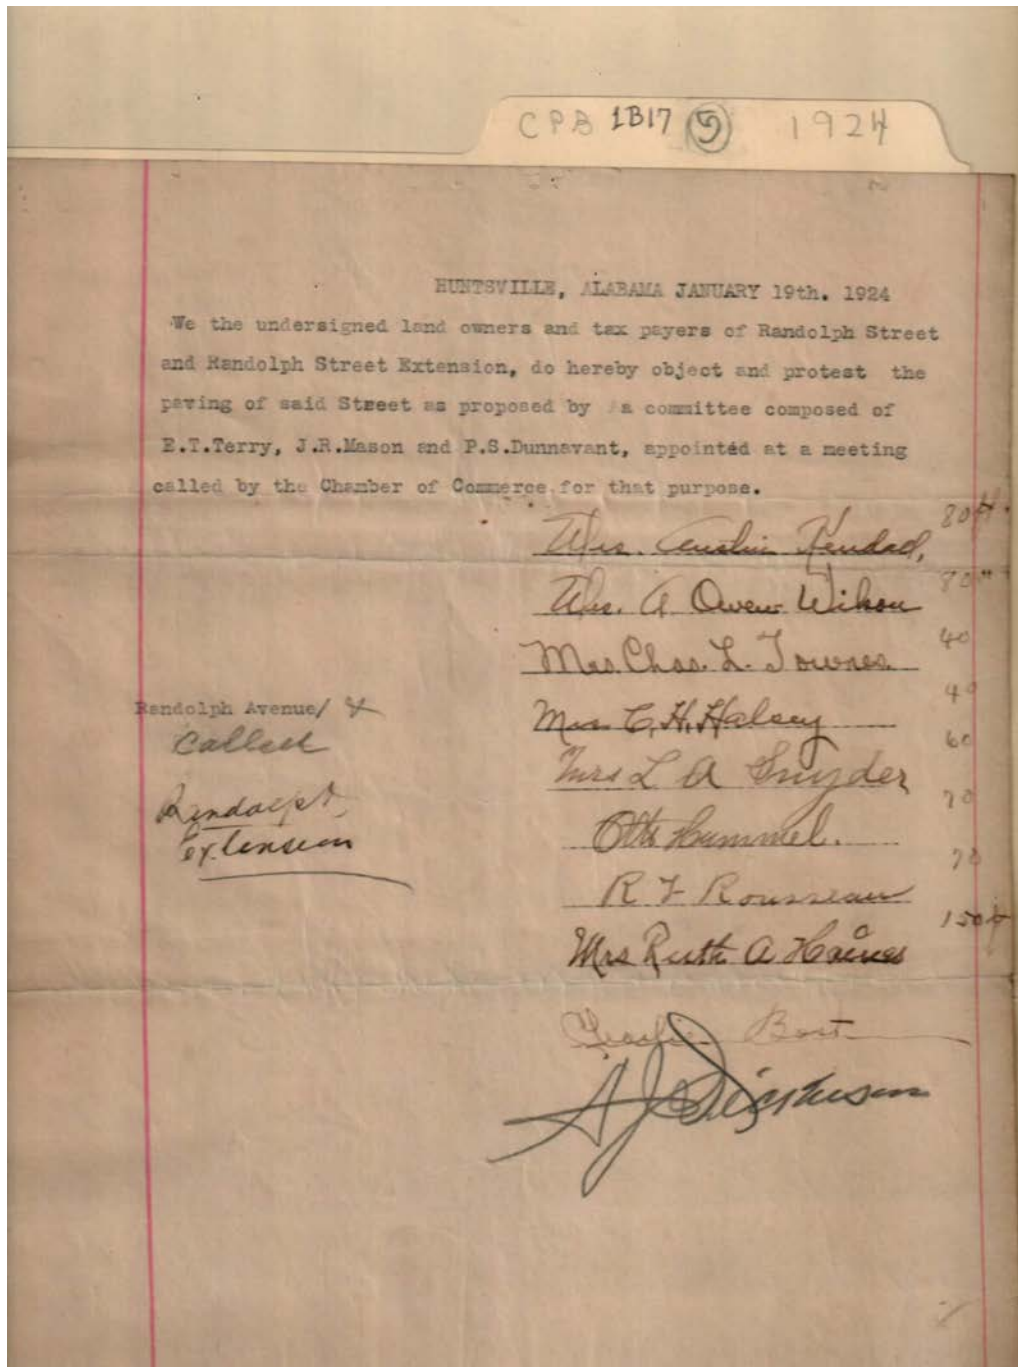 CPB 1B17 5 1924
HUNTSVILLE, ALABAMA JANUARY 19th. 1924
We the undersigned land owners and tax payers of Randolph Street
and Randolph Street Extension, do hereby object and protest the
paving of said Street as proposed by a committee composed of
E.T.Terry, J.R.Mason and P.S.Dunnavant, appointed at a meeting
called by the Chamber of Commerce for that purpose.
80 ft.
Mrs. Austin Kendall,
Mrs. A Owen Wilson 80"
Mrs Chas. L. Townes 40
Mrs C. H. Halsey 40
Mrs L A Snyder 60
Otto Hummel. 70
R F Rousseau 70
Mrs Ruth A Haines 150
Bost
A J
Randolph Avenue/
Called
Randolph
Extension